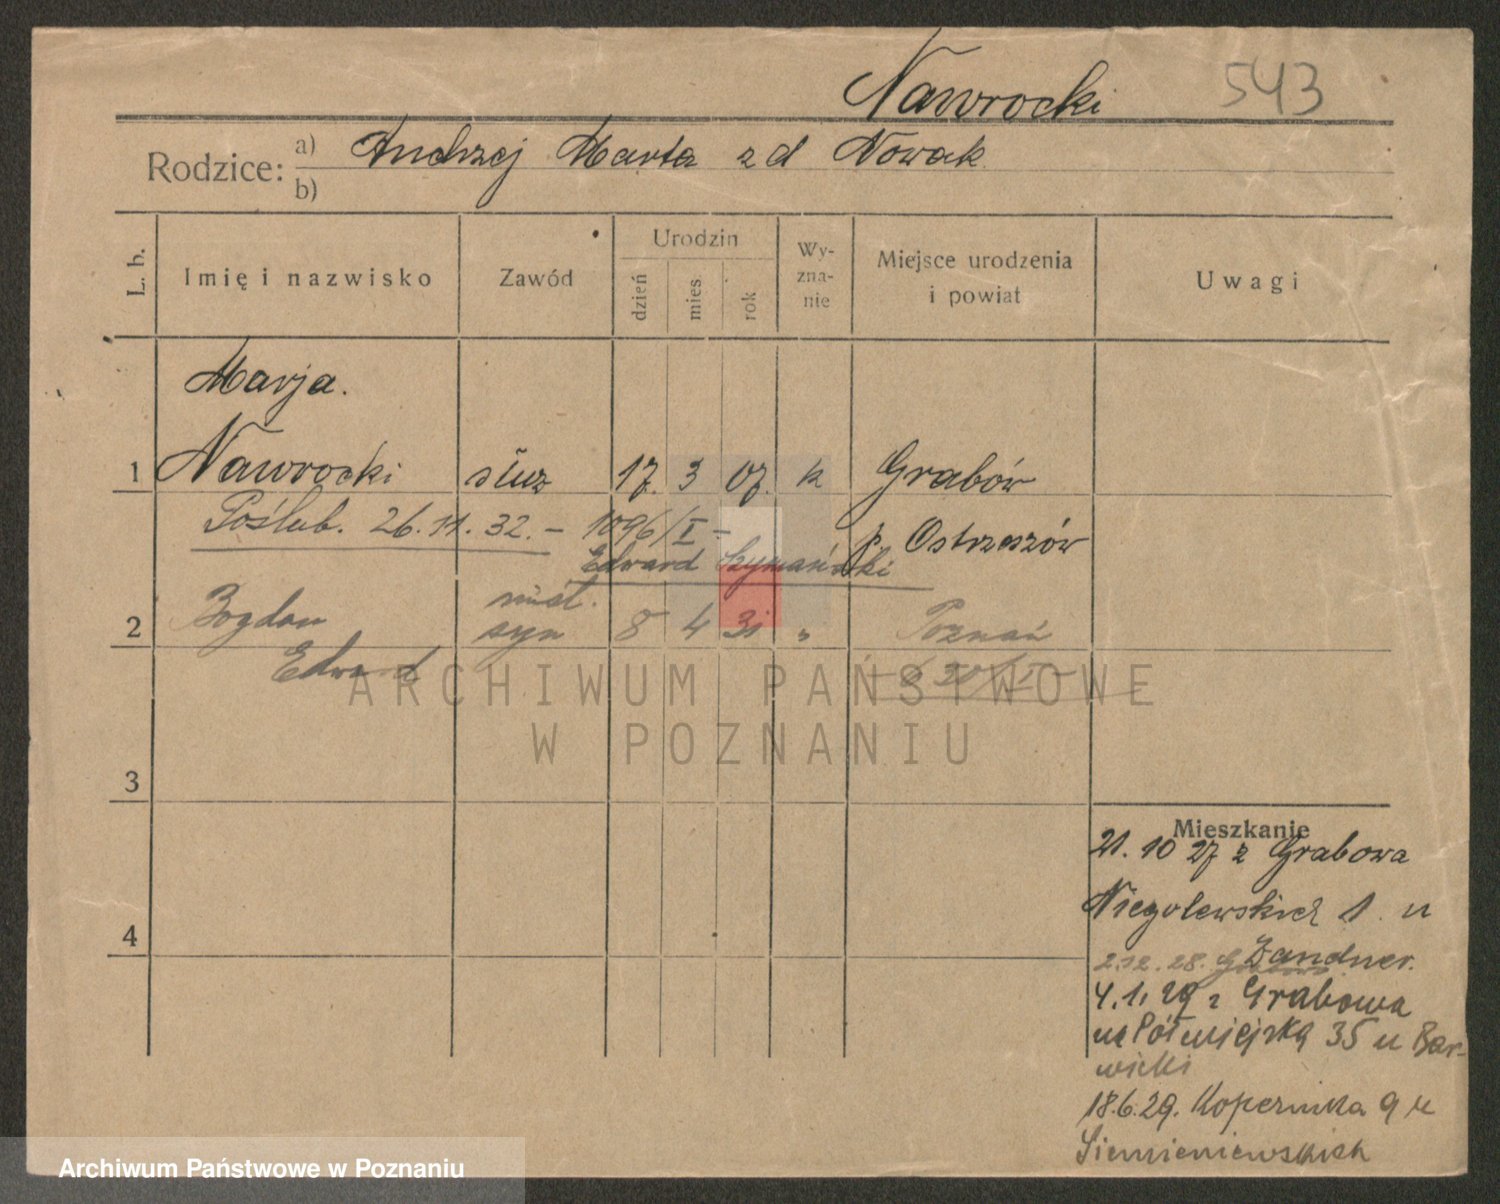 Nawrocki 543
Rodzice: a) Andrzej Marta z d Nowak
b)
L. b. Imię i nazwisko Zawód Urodzin dzień mies. rok Wy-zna-nie Miejsce urodzenia i powiat Uwagi
Marja.
1 Nawrocki służ 17. 3 07. k Grabów
Poślub. 26.11.32. – 1096/I – p. Ostrzeszów
Edward Szymański
nieśl.
2 Bogdan syn 8 4 31 " Poznań
Edward
ARCHIWUM PAŃSTWOWE
W POZNANIU
3
Mieszkanie
21. 10 27 z Grabowa
4 Niegolewskich 1. u
2.12.28. Grabowo Zandner.
4.1.29 z Grabowa
na Półwiejską 35 u Bar-
wicki
18.6.29. Kopernika 9 u
Siemieniewskich
Archiwum Państwowe w Poznaniu